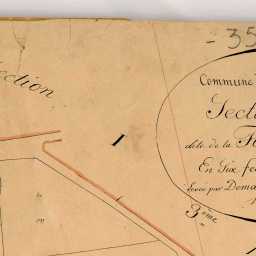 - 35
ection
Commune
Secti
dite de la
En Six fe
levée par Dema
1
3.eme